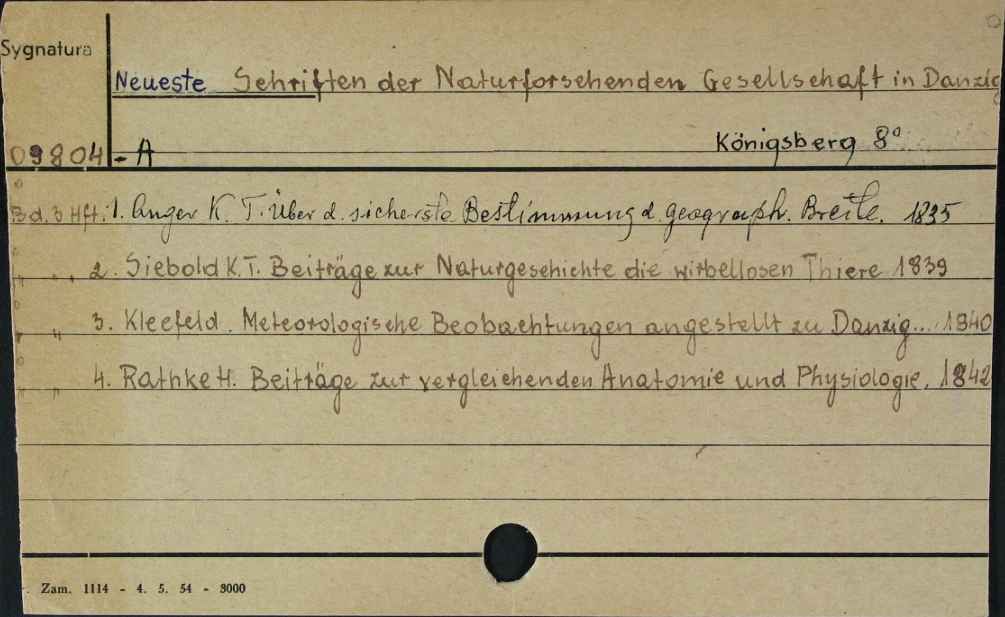 Sygnatura
Neueste Schriften der Naturforschenden Gesellschaft in Danzig
09804 - A Königsberg 8°
Bd. 3 Hft. 1. Anger K. T. Über d. sicherste Bestimmung d. geograph. Breite. 1835
" " 2. Siebold K. T. Beiträge zur Naturgeschichte die wirbellosen Thiere 1839
" " 3. Kleefeld. Meteorologische Beobachtungen angestellt zu Danzig.... 1840
" " 4. Rathke H. Beiträge zur vergleichenden Anatomie und Physiologie. 1842
Zam. 1114 - 4. 5. 54 - 3000